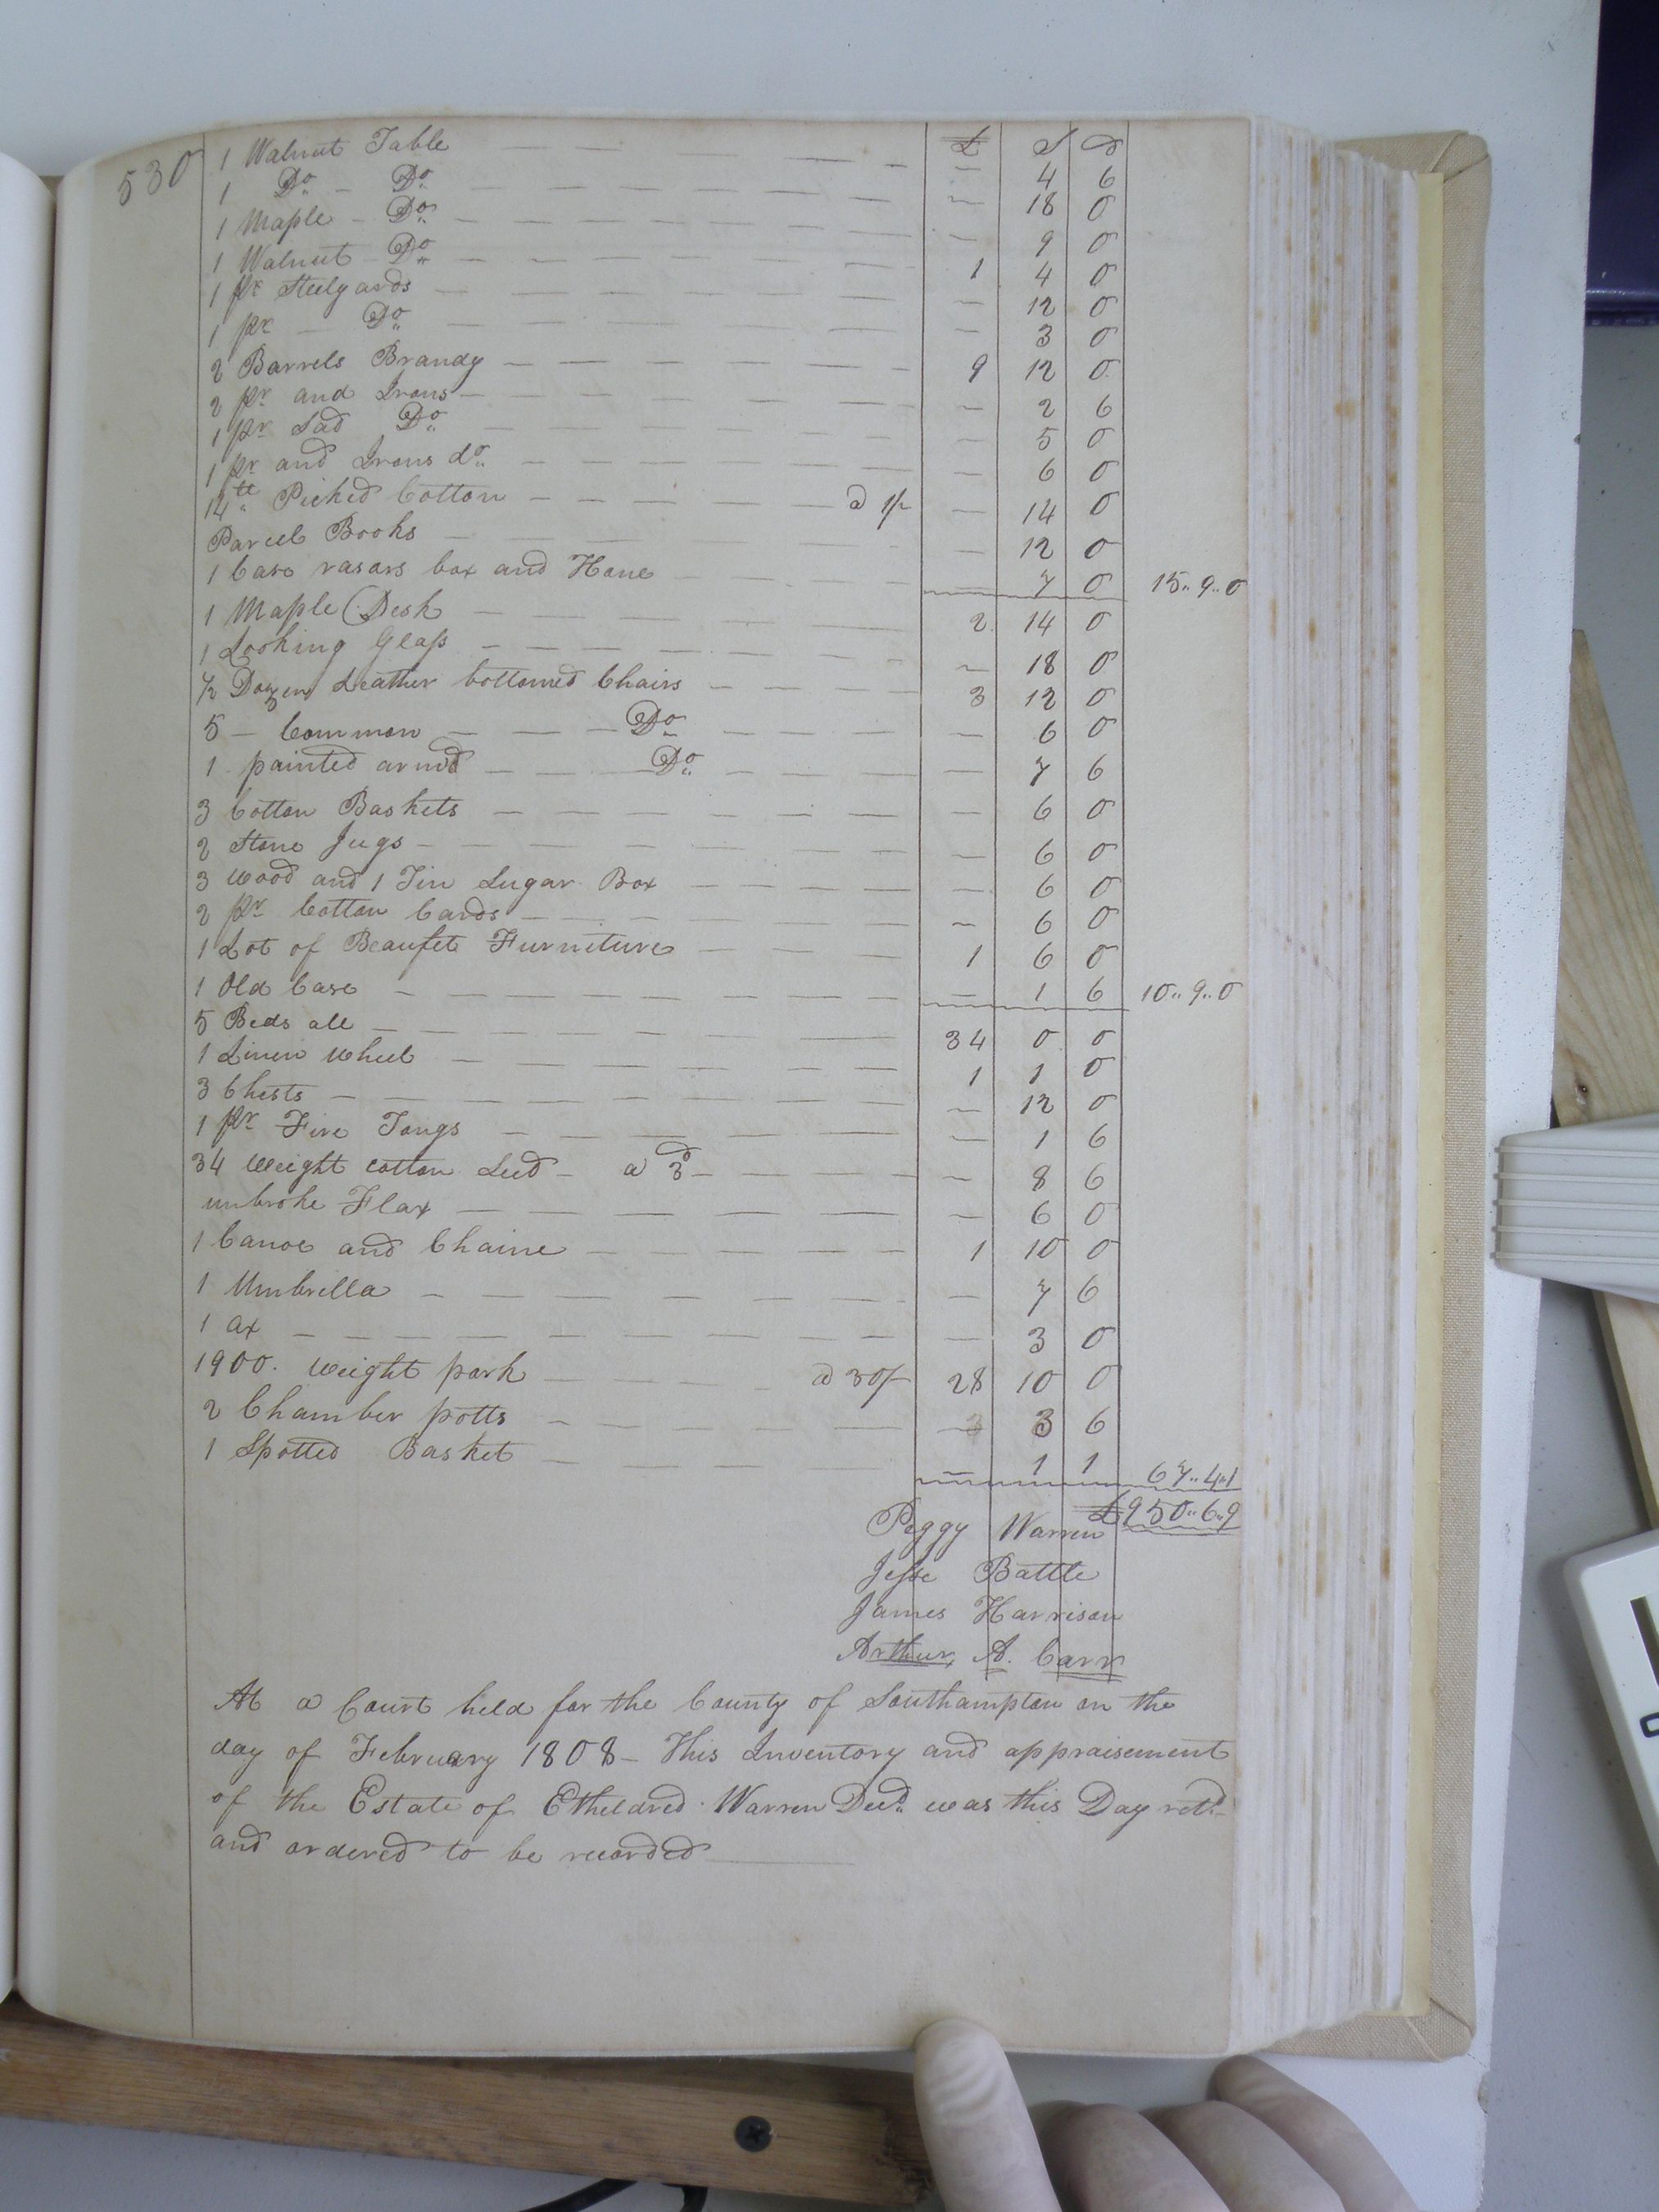 530
1 Walnut Table — — — £ S D
1 Do — Do — — — — 4 6
1 Maple – Do — — — — 18 0
1 Walnut – Do — — — — 9 0
1 pr Steelyards — — — 1 4 0
1 pr — Do — — — — 12 0
2 Barrels Brandy — — — — 3 0
2 pr and Irons — — — 9 12 0
1 pr Sad Do — — — — 2 6
1 pr and Irons do — — — — 5 0
14 tt Picked Cotton — — a 1/ — 6 0
Parcel Books — — — 14 0
1 Case rasors box and Hone — — — 12 0
— 7 0 15..9..0
1 Maple Desk — — — 2 14 0
1 Looking Glass — — — — 18 0
1/2 Dozen Leather bottomed Chairs — — 3 12 0
5 – Common — — — Do — — — 6 0
1 painted armd — — — Do — — — 7 6
3 Cotton Baskets — — — — 6 0
2 Stone Jugs — — — — 6 0
3 wood and 1 Tin Sugar Box — — — 6 0
2 pr Cotton Cards — — — — 6 0
1 Lot of Beaufet Furniture — — 1 6 0
1 Old Case — — — — 1 6 10..9..0
5 Beds all — — — 34 0 0
1 Linen Wheel — — — 1 1 0
3 Chests — — — — 12 0
1 pr Fire Tongs — — — — 1 6
34 Weight cotton Seed – a 3d — — — 8 6
unbroke Flax — — — — 6 0
1 Canoe and Chaine — — — 1 10 0
1 Umbrella — — — — 7 6
1 ax — — — — 3 0
1900. Weight pork — — a 30/ 28 10 0
2 Chamber potts — — — 3 6
1 Spotted Basket — — — — 1 1 67..4..1
£950..6..9
Peggy Warren
Jesse Battle
James Harrison
Arthur A. Carr
At a Court held for the County of Southampton on the
day of February 1808 – This Inventory and appraisement
of the Estate of Etheldred Warren Decd. was this Day retd.
and ordered to be recorded